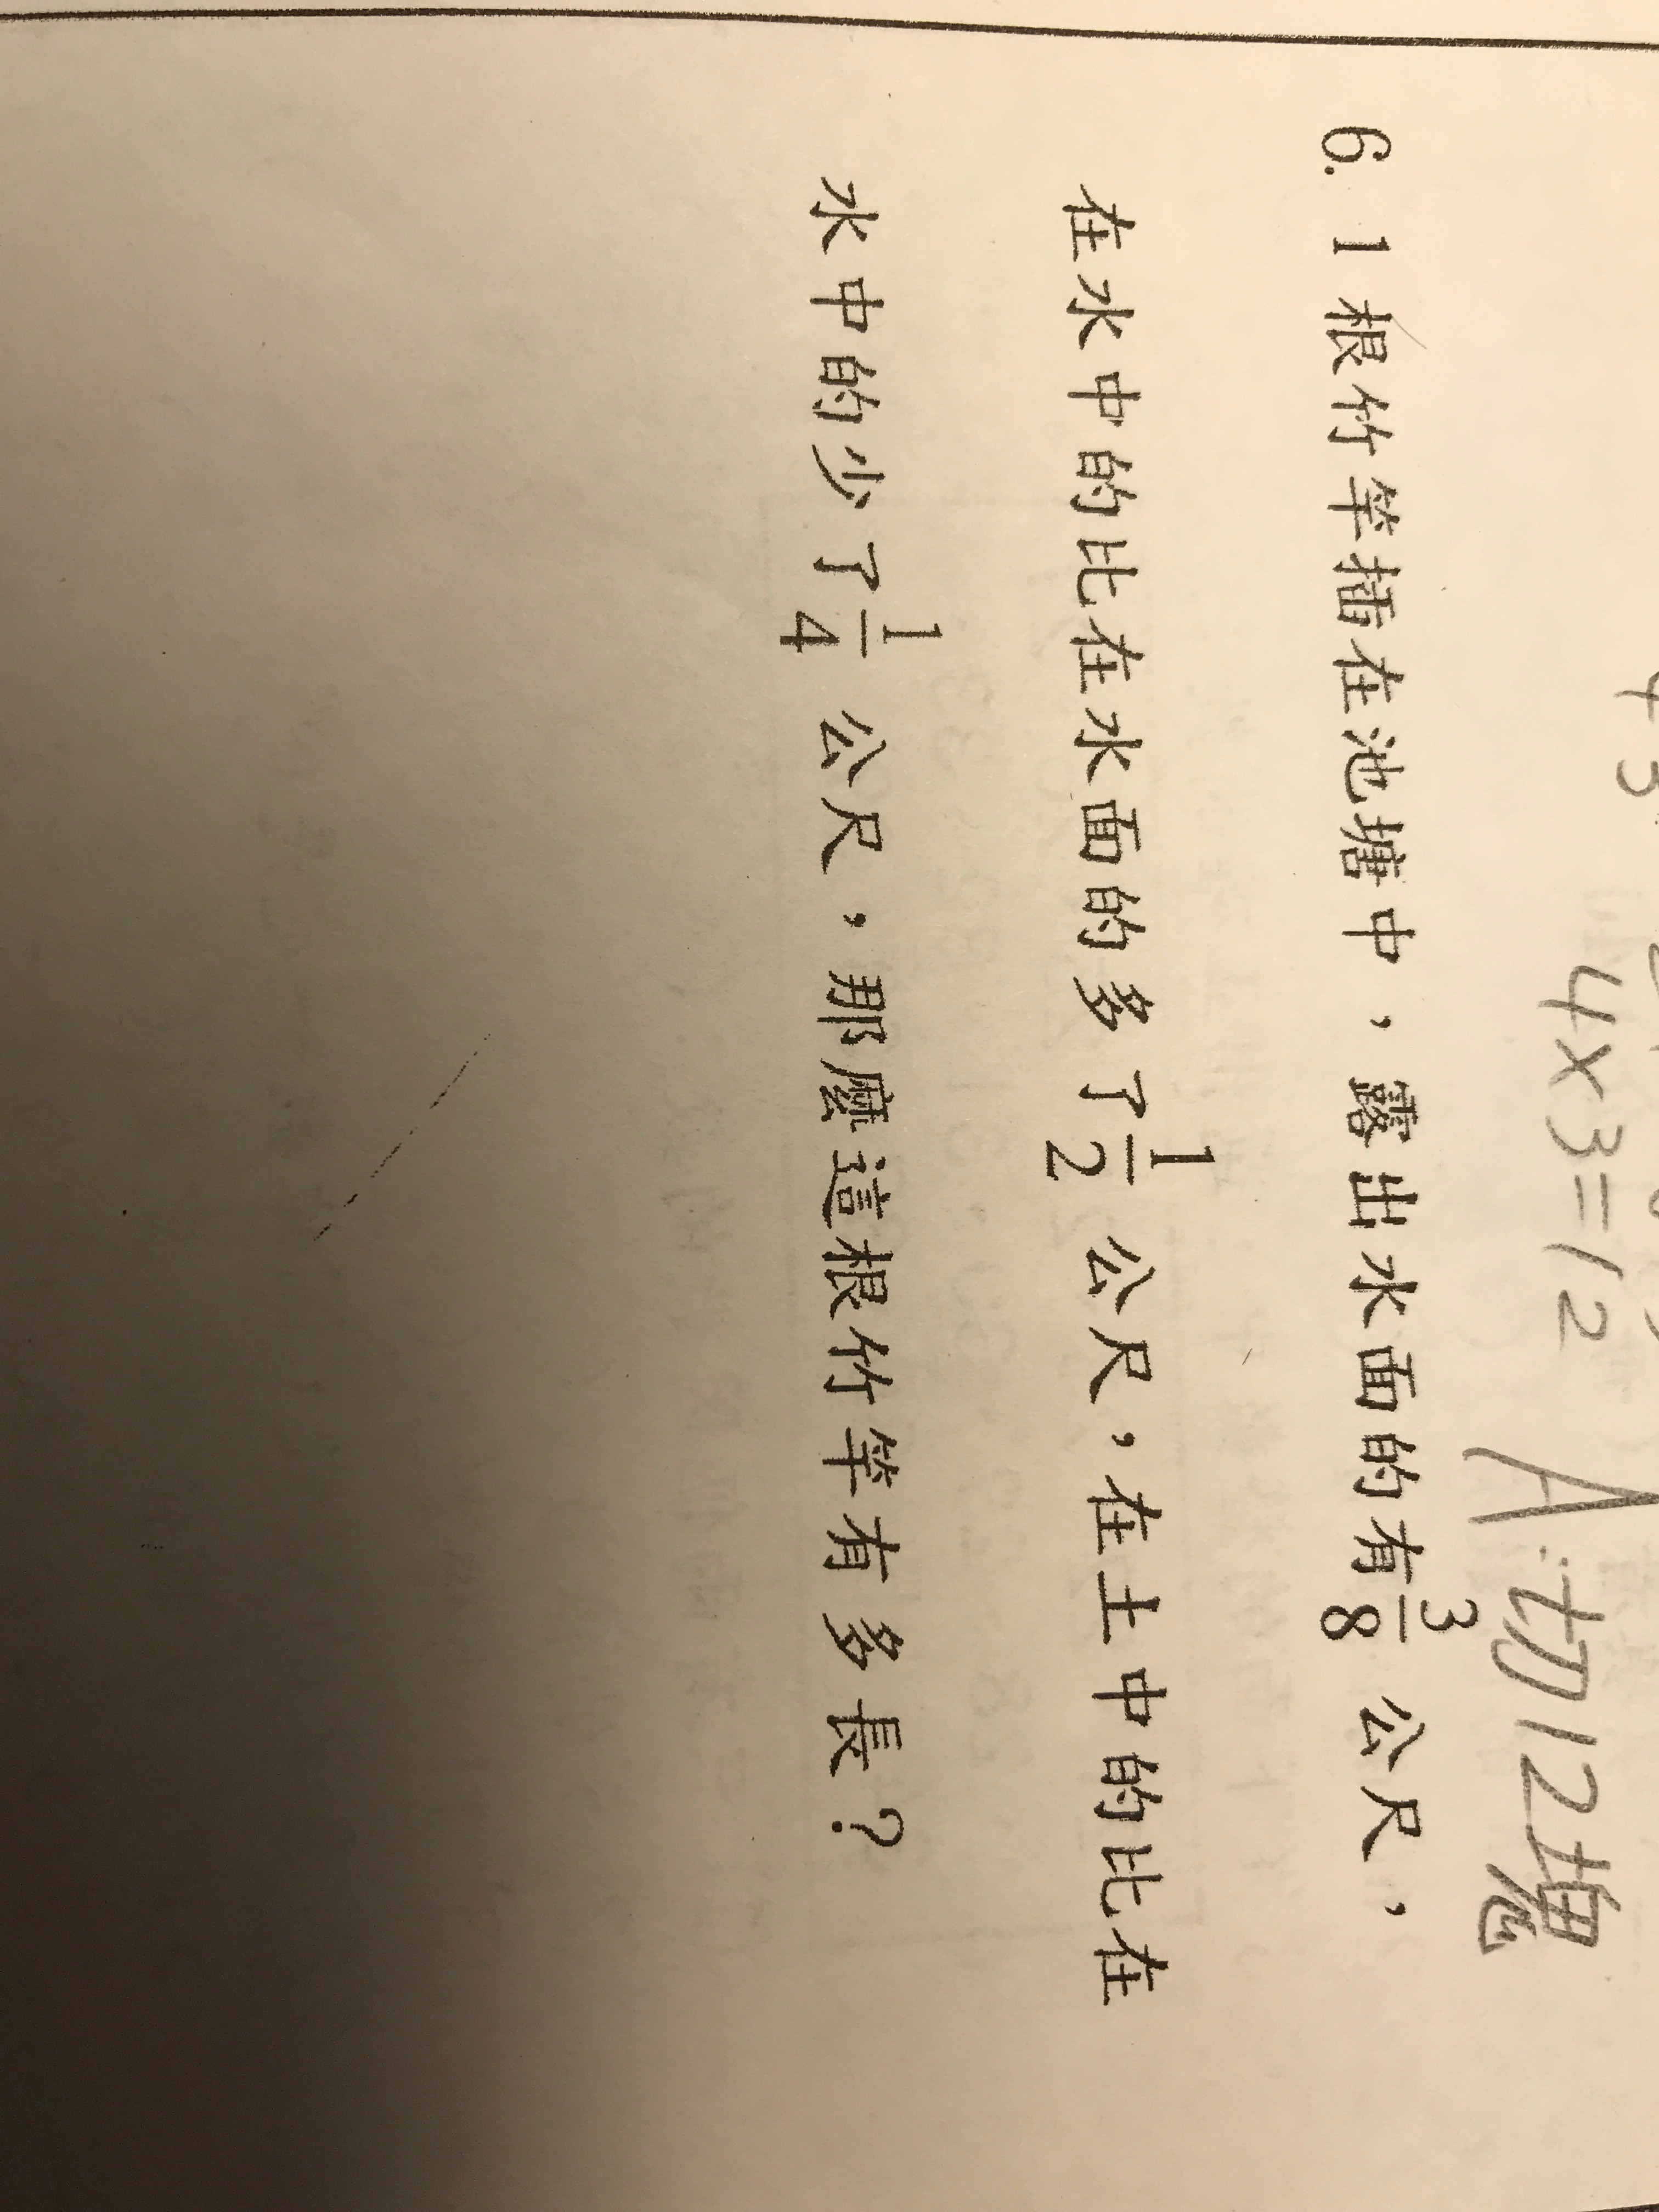 4×3=12 A:切12塊
6. 1根竹竿插在池塘中,露出水面的有3/8公尺,
在水中的比在水面的多了1/2公尺,在土中的比在
水中的少了1/4公尺,那麼這根竹竿有多長?